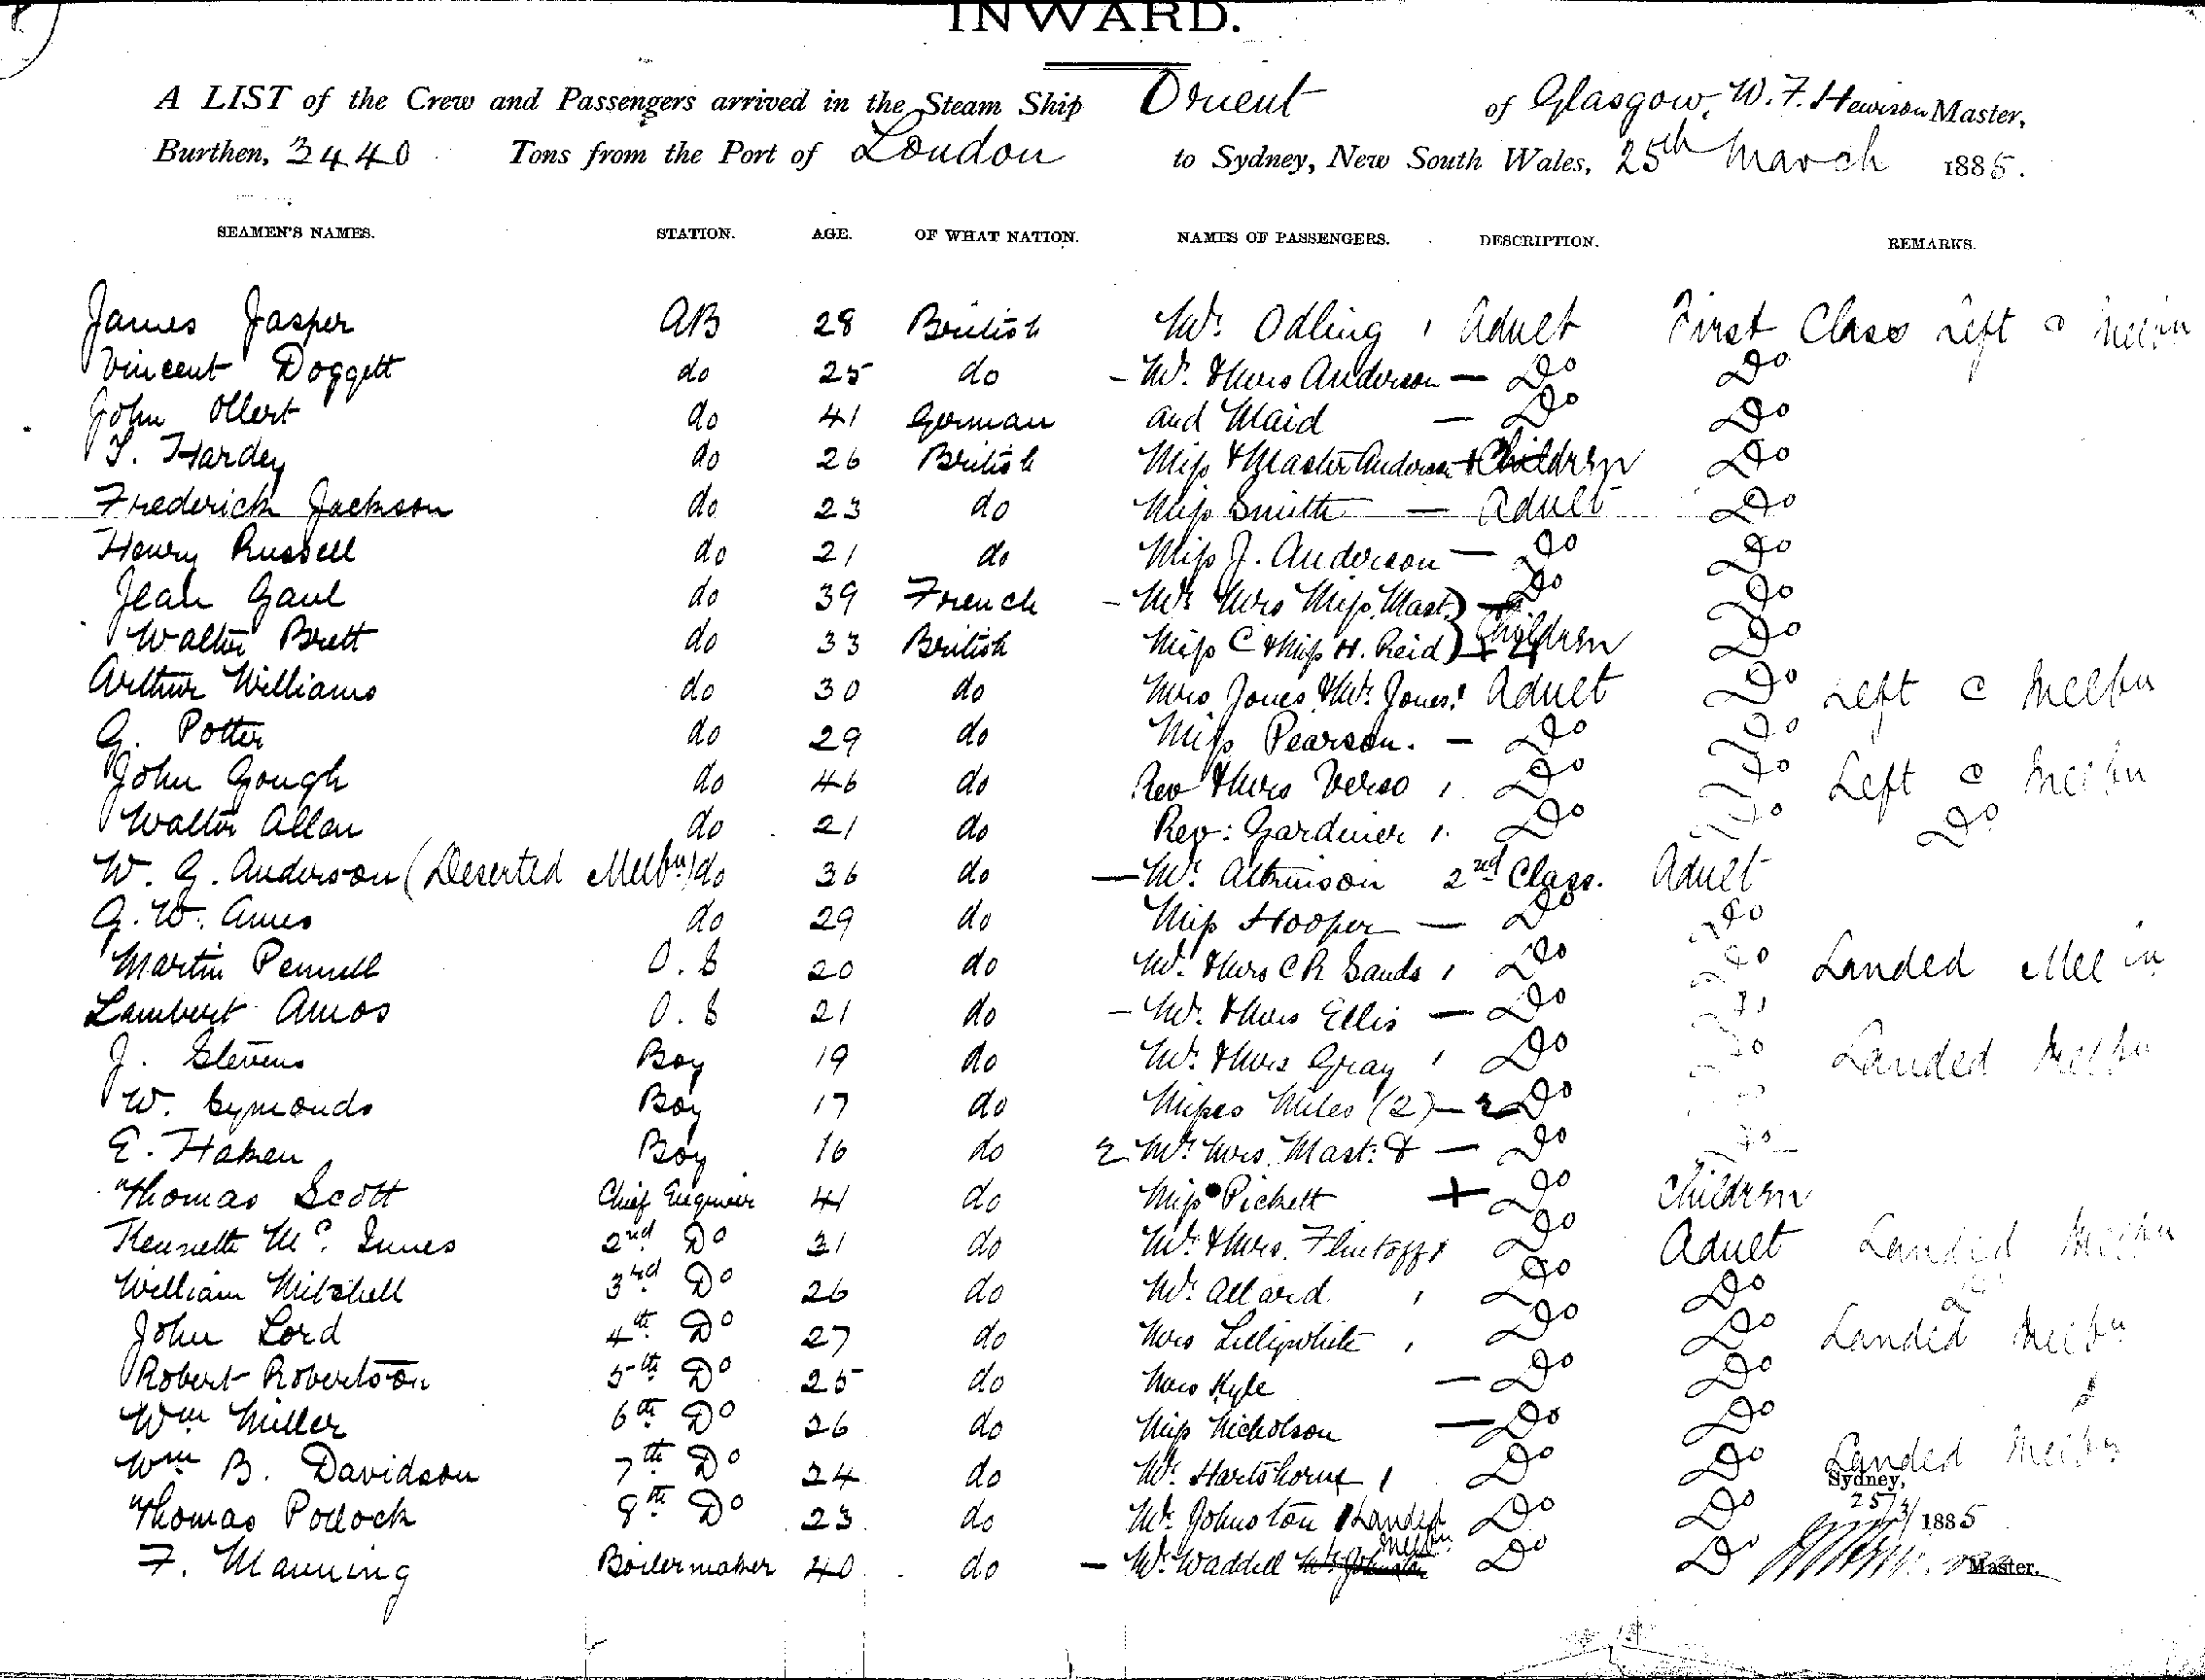 INWARD.
A LIST of the Crew and Passengers arrived in the Steam Ship Orient of Glasgow, W. F. Hewison Master,
Burthen, 3440 Tons from the Port of London to Sydney, New South Wales, 25th March 1885.
SEAMEN'S NAMES. STATION. AGE. OF WHAT NATION. NAMES OF PASSENGERS. DESCRIPTION. REMARKS.
James Jasper AB 28 British Mr. Odling ' Adult First Class Left @ Melbn
Vincent Doggett do 25 do - Mr. & Mrs Anderson - Do Do
John Ollert do 41 German and Maid - Do Do
T. Hardey do 26 British Miss & Master Anderson + Children Do
Frederick Jackson do 23 do Miss Smith - Adult Do
Henry Russell do 21 do Miss J. Anderson - Do Do
Jean Gaul do 39 French - Mr. Mrs Miss, Mast. } - Do Do
Walter Brett do 33 British Miss C & Miss H. Reid } + 4 Children Do
Arthur Williams do 30 do Mrs Jones & Mr. Jones ' Adult Do Left @ Melbn
G. Potter do 29 do Miss Pearson. - Do Do
John Gough do 46 do Rev & Mrs Verso ' Do Do Left @ Melbn
Walter Allan do 21 do Rev: Gardiner ' Do Do Do
W. G. Anderson (Deserted Melbn) do 36 do - Mr. Atkinson 2nd Class. Adult
G. W. Ames do 29 do Miss Hooper - Do Do
Martin Pennell O.S 20 do Mr. & Mrs C R Sands ' Do Do Landed Melbn
Lambert Amos O.S 21 do - Mr. & Mrs Ellis - Do Do
J. Stevens Boy 19 do Mr. & Mrs Gray ' Do Do Landed Melbn
W. Symonds Boy 17 do Misses Miles (2) - 2 Do
E. Haken Boy 16 do 2. Mr. Mrs. Mast: & - Do Do
Thomas Scott Chief Engineer 41 do Miss Pickett + Do Children
Kenneth Mc. Innes 2nd Do 31 do Mr. & Mrs. Flintoff ' Do Adult Landed Melbn
William Mitchell 3rd Do 26 do Mr. Allard ' Do Do Do
John Lord 4th Do 27 do Mrs Lillywhite ' Do Do Landed Melbn
Robert Robertson 5th Do 25 do Mrs Kyle - Do Do
Wm Miller 6th Do 26 do Miss Nicholson - Do Do
Wm B. Davidson 7th Do 24 do Mr. Hartshorne ' Do Do Landed Melbn
Sydney,
Thomas Pollock 8th Do 23 do Mr. Johnston ' Landed Melbn Do Do 25/3/1885
F. Manning Boilermaker 40 do - Mr. Waddell Mr. Johnston Do Do Master.